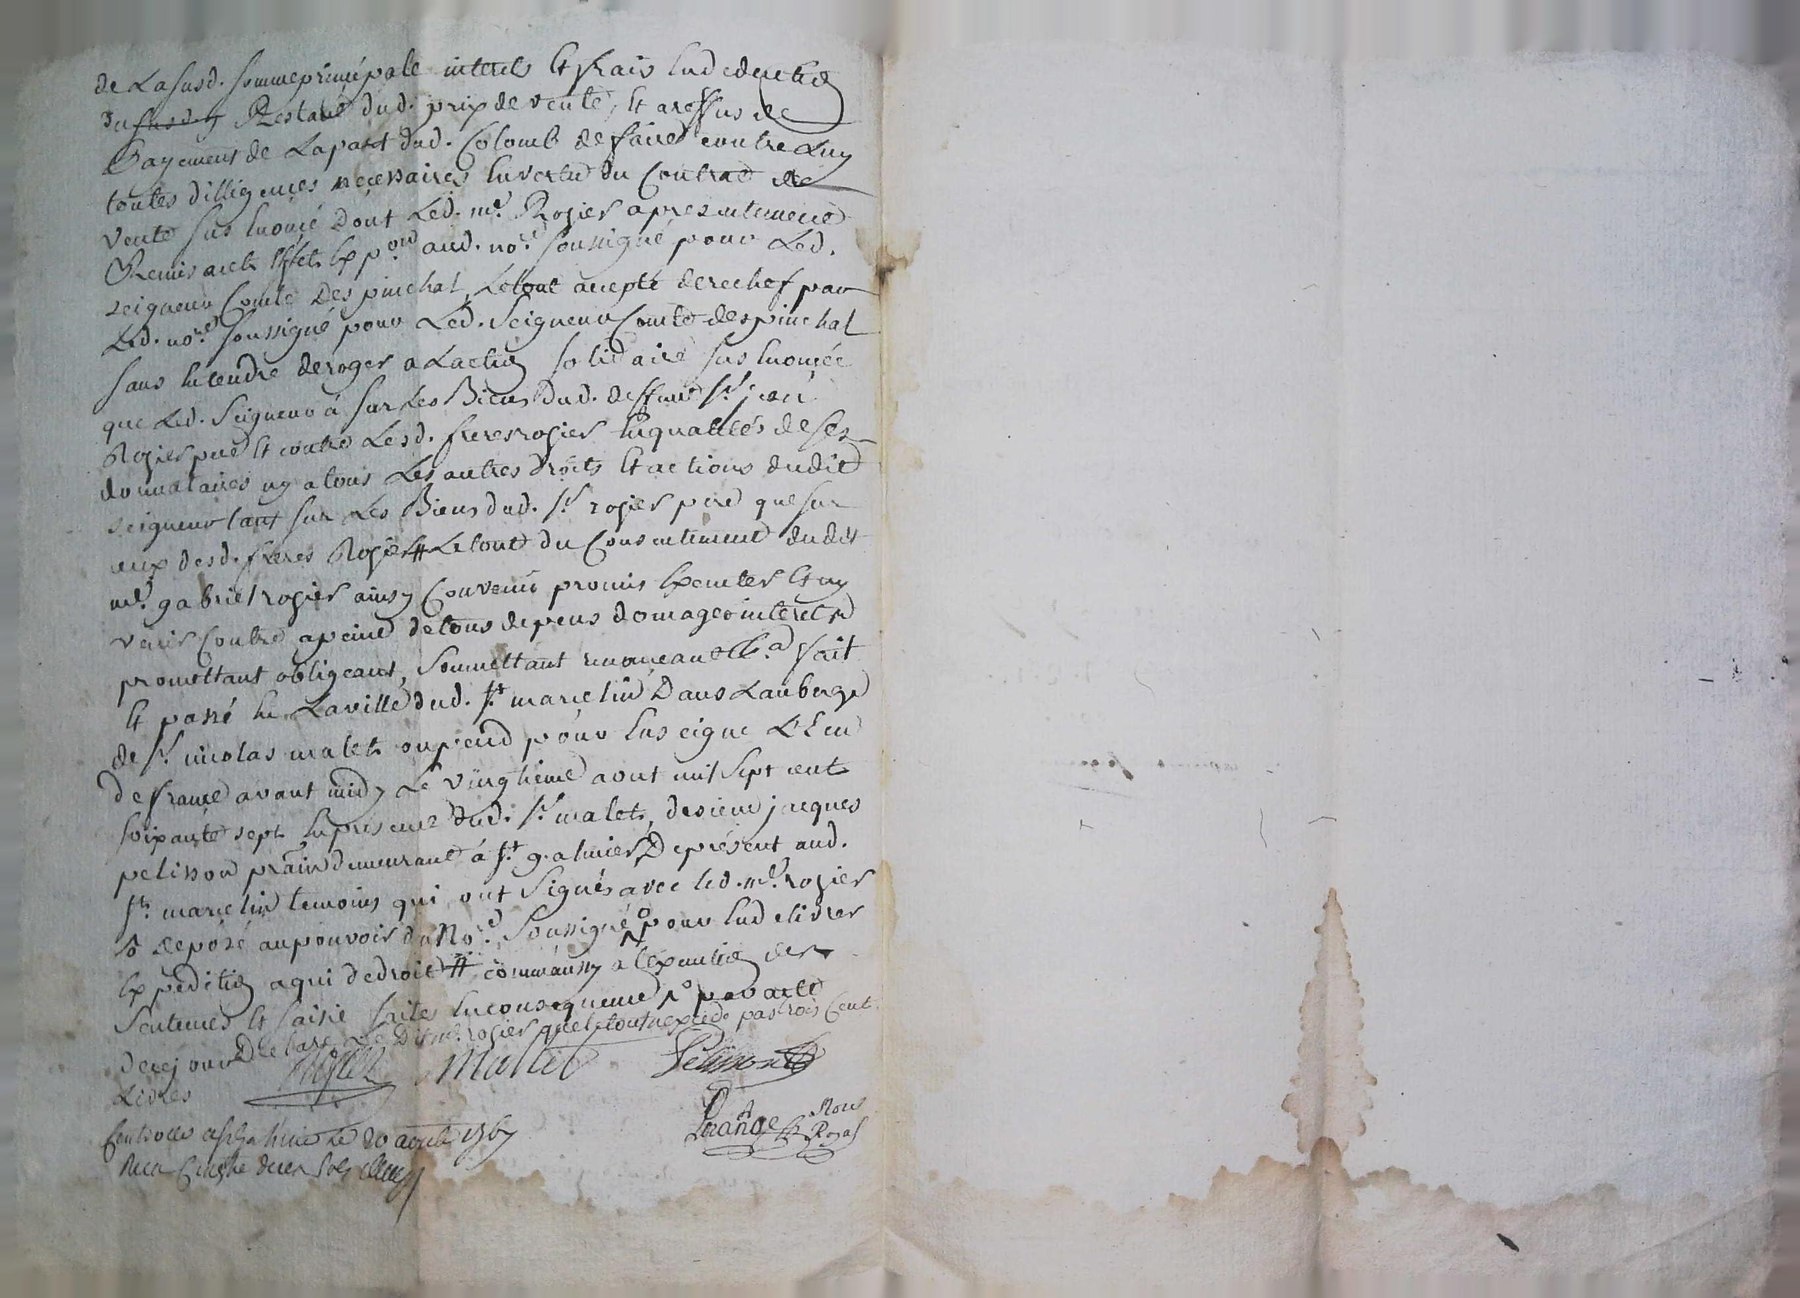 de La susd. somme principale interets Et frais En deduction
du susdit Restant dud. prix de vente, Et a reffus de
Payement de La part dud. Colomb de faire contre Luy
toutes dilligences nécessaires En vertu du Contrat de
vente sus Enoncé Dont Led. me. Rosier a presentement
Remis acet Effet Expon. aud. nore. soussigné pour Led.
seigneur Comte Despinchal, Letout accepté derechef par
Led. nore. soussigné pour Led. Seigneur Comte despinchal
sans Entendre deroger a Laction solidaire sus Enoncée
que Led. Seigneur à sur Les Biens dud. deffunt sr. jean
Rosier pere Et contre Lesd. freres rosier En qualités de ses
donnataires ny a tous Les autres droits Et actions dudit
seigneur tant sur Les Biens dud. sr. rosier pere que sur
ceux desd. freres Rosier # Le tout du Consentement dudit
me. gabriel rosier ainsy Convenu promis Executer Et ny
venir Contre a peine de tous depens domages interets
promettant obligeant, soumettant renonceant &a. fait
Et passé En La ville dud. st. marcelin Dans Lauberge
de sr. nicolas malet ou pend pour Enseigne L'Ecu
de france avant midy Le vingtieme aout mil sept cent
soixante sept En presence dud. sr. malet, de sieur jacques
pelisson demeurant à st. galmier De présent aud.
st. marcelin temoins qui ont signés avec led. me. rosier
deposé au pouvoir du Nore. soussigné pour En delivrer
Expedition a qui de droit # comme aussy a l'Execution des
sentences Et saisie faites En consequence par acte
de ce jour Declare Le Dit me. rosier que le tout nexcede pas trois Cent
Livres
Rosier Mallet Pelisson
Controllé a st galmier Le 20 aout 1767
Reçu
Nore Royal